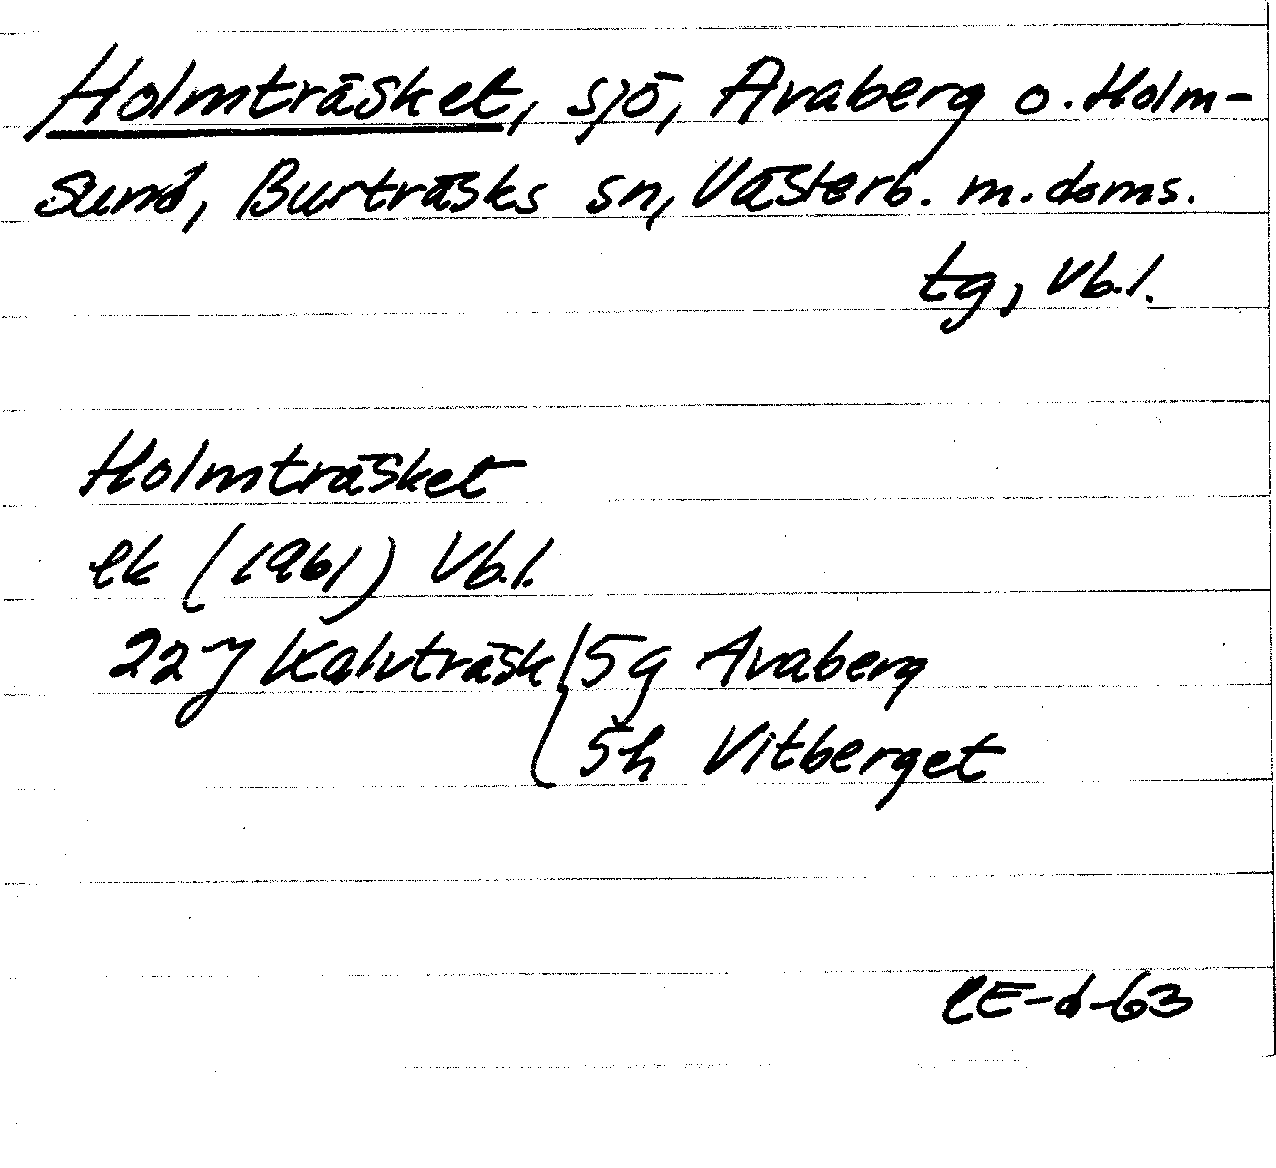 Holmträsket, sjö, Avaberg o. Holm-
sund, Burträsks sn, Västerb. m. doms.
tg, Vb.l.
Holmträsket
ek (1961) Vb.l.
22 J Kalvträsk/5g Avaberg
5h Vitberget
CE-d-63